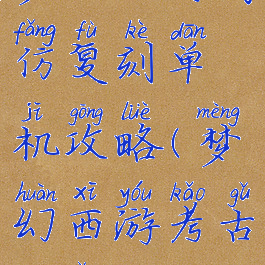 fǎng fù kè dān
仿复刻单
jī gōng lüè mèng
机攻略(梦
huàn xī yóu kǎo gǔ
幻西游考古